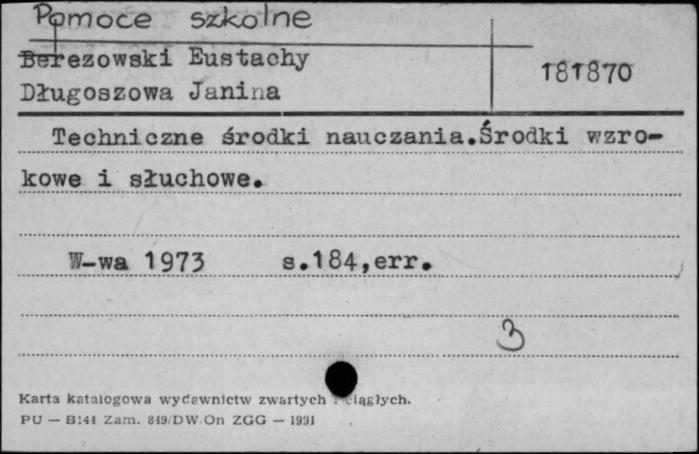 Pomoce szkolne
Berezowski Eustachy
181870
Długoszowa Janina
Techniczne środki nauczania.Środki wzro-
kowe i słuchowe.
W-wa 1973 s.184,err.
3
Karta katalogowa wydawnictw zwartych i ciągłych.
PU — B144 Zam. 849/DW/On ZGG — 1991